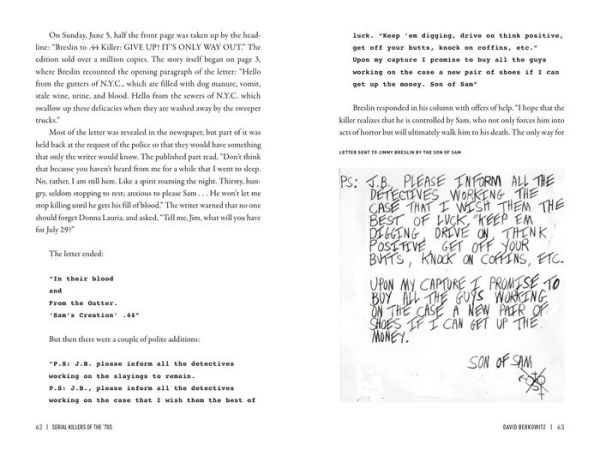 On Sunday, June 5, half the front page was taken up by the head-
line: “Breslin to .44 Killer: GIVE UP! IT’S ONLY WAY OUT.” The
edition sold over a million copies. The story itself began on page 3,
where Breslin recounted the opening paragraph of the letter: “Hello
from the gutters of N.Y.C., which are filled with dog manure, vomit,
stale wine, urine, and blood. Hello from the sewers of N.Y.C. which
swallow up these delicacies when they are washed away by the sweeper
trucks.”
Most of the letter was revealed in the newspaper, but part of it was
held back at the request of the police so that they would have something
that only the writer would know. The published part read, “Don’t think
that because you haven’t heard from me for a while that I went to sleep.
No, rather, I am still here. Like a spirit roaming the night. Thirsty, hun-
gry, seldom stopping to rest; anxious to please Sam . . . He won’t let me
stop killing until he gets his fill of blood.” The writer warned that no one
should forget Donna Lauria, and asked, “Tell me, Jim, what will you have
for July 29?”
The letter ended:
“In their blood
and
From the Gutter.
‘Sam’s Creation’ .44”
But then there were a couple of polite additions:
“P.S: J.B. please inform all the detectives
working on the slayings to remain.
P.S: J.B., please inform all the detectives
working on the case that I wish them the best of
62 | SERIAL KILLERS OF THE ’70S
luck. “Keep ’em digging, drive on think positive,
get off your butts, knock on coffins, etc.”
Upon my capture I promise to buy all the guys
working on the case a new pair of shoes if I can
get up the money. Son of Sam”
Breslin responded in his column with offers of help. “I hope that the
killer realizes that he is controlled by Sam, who not only forces him into
acts of horror but will ultimately walk him to his death. The only way for
LETTER SENT TO JIMMY BRESLIN BY THE SON OF SAM
PS: J.B. PLEASE INFORM ALL THE
DETECTIVES WORKING THE
CASE THAT I WISH THEM THE
BEST OF LUCK. "KEEP EM
DIGGING DRIVE ON THINK
POSITIVE GET OFF YOUR
BUTTS, KNOCK ON COFFINS, ETC.
UPON MY CAPTURE I PROMISE TO
BUY ALL THE GUYS WORKING
ON THE CASE A NEW PAIR OF
SHOES IF I CAN GET UP THE
MONEY.
SON OF SAM
DAVID BERKOWITZ | 63